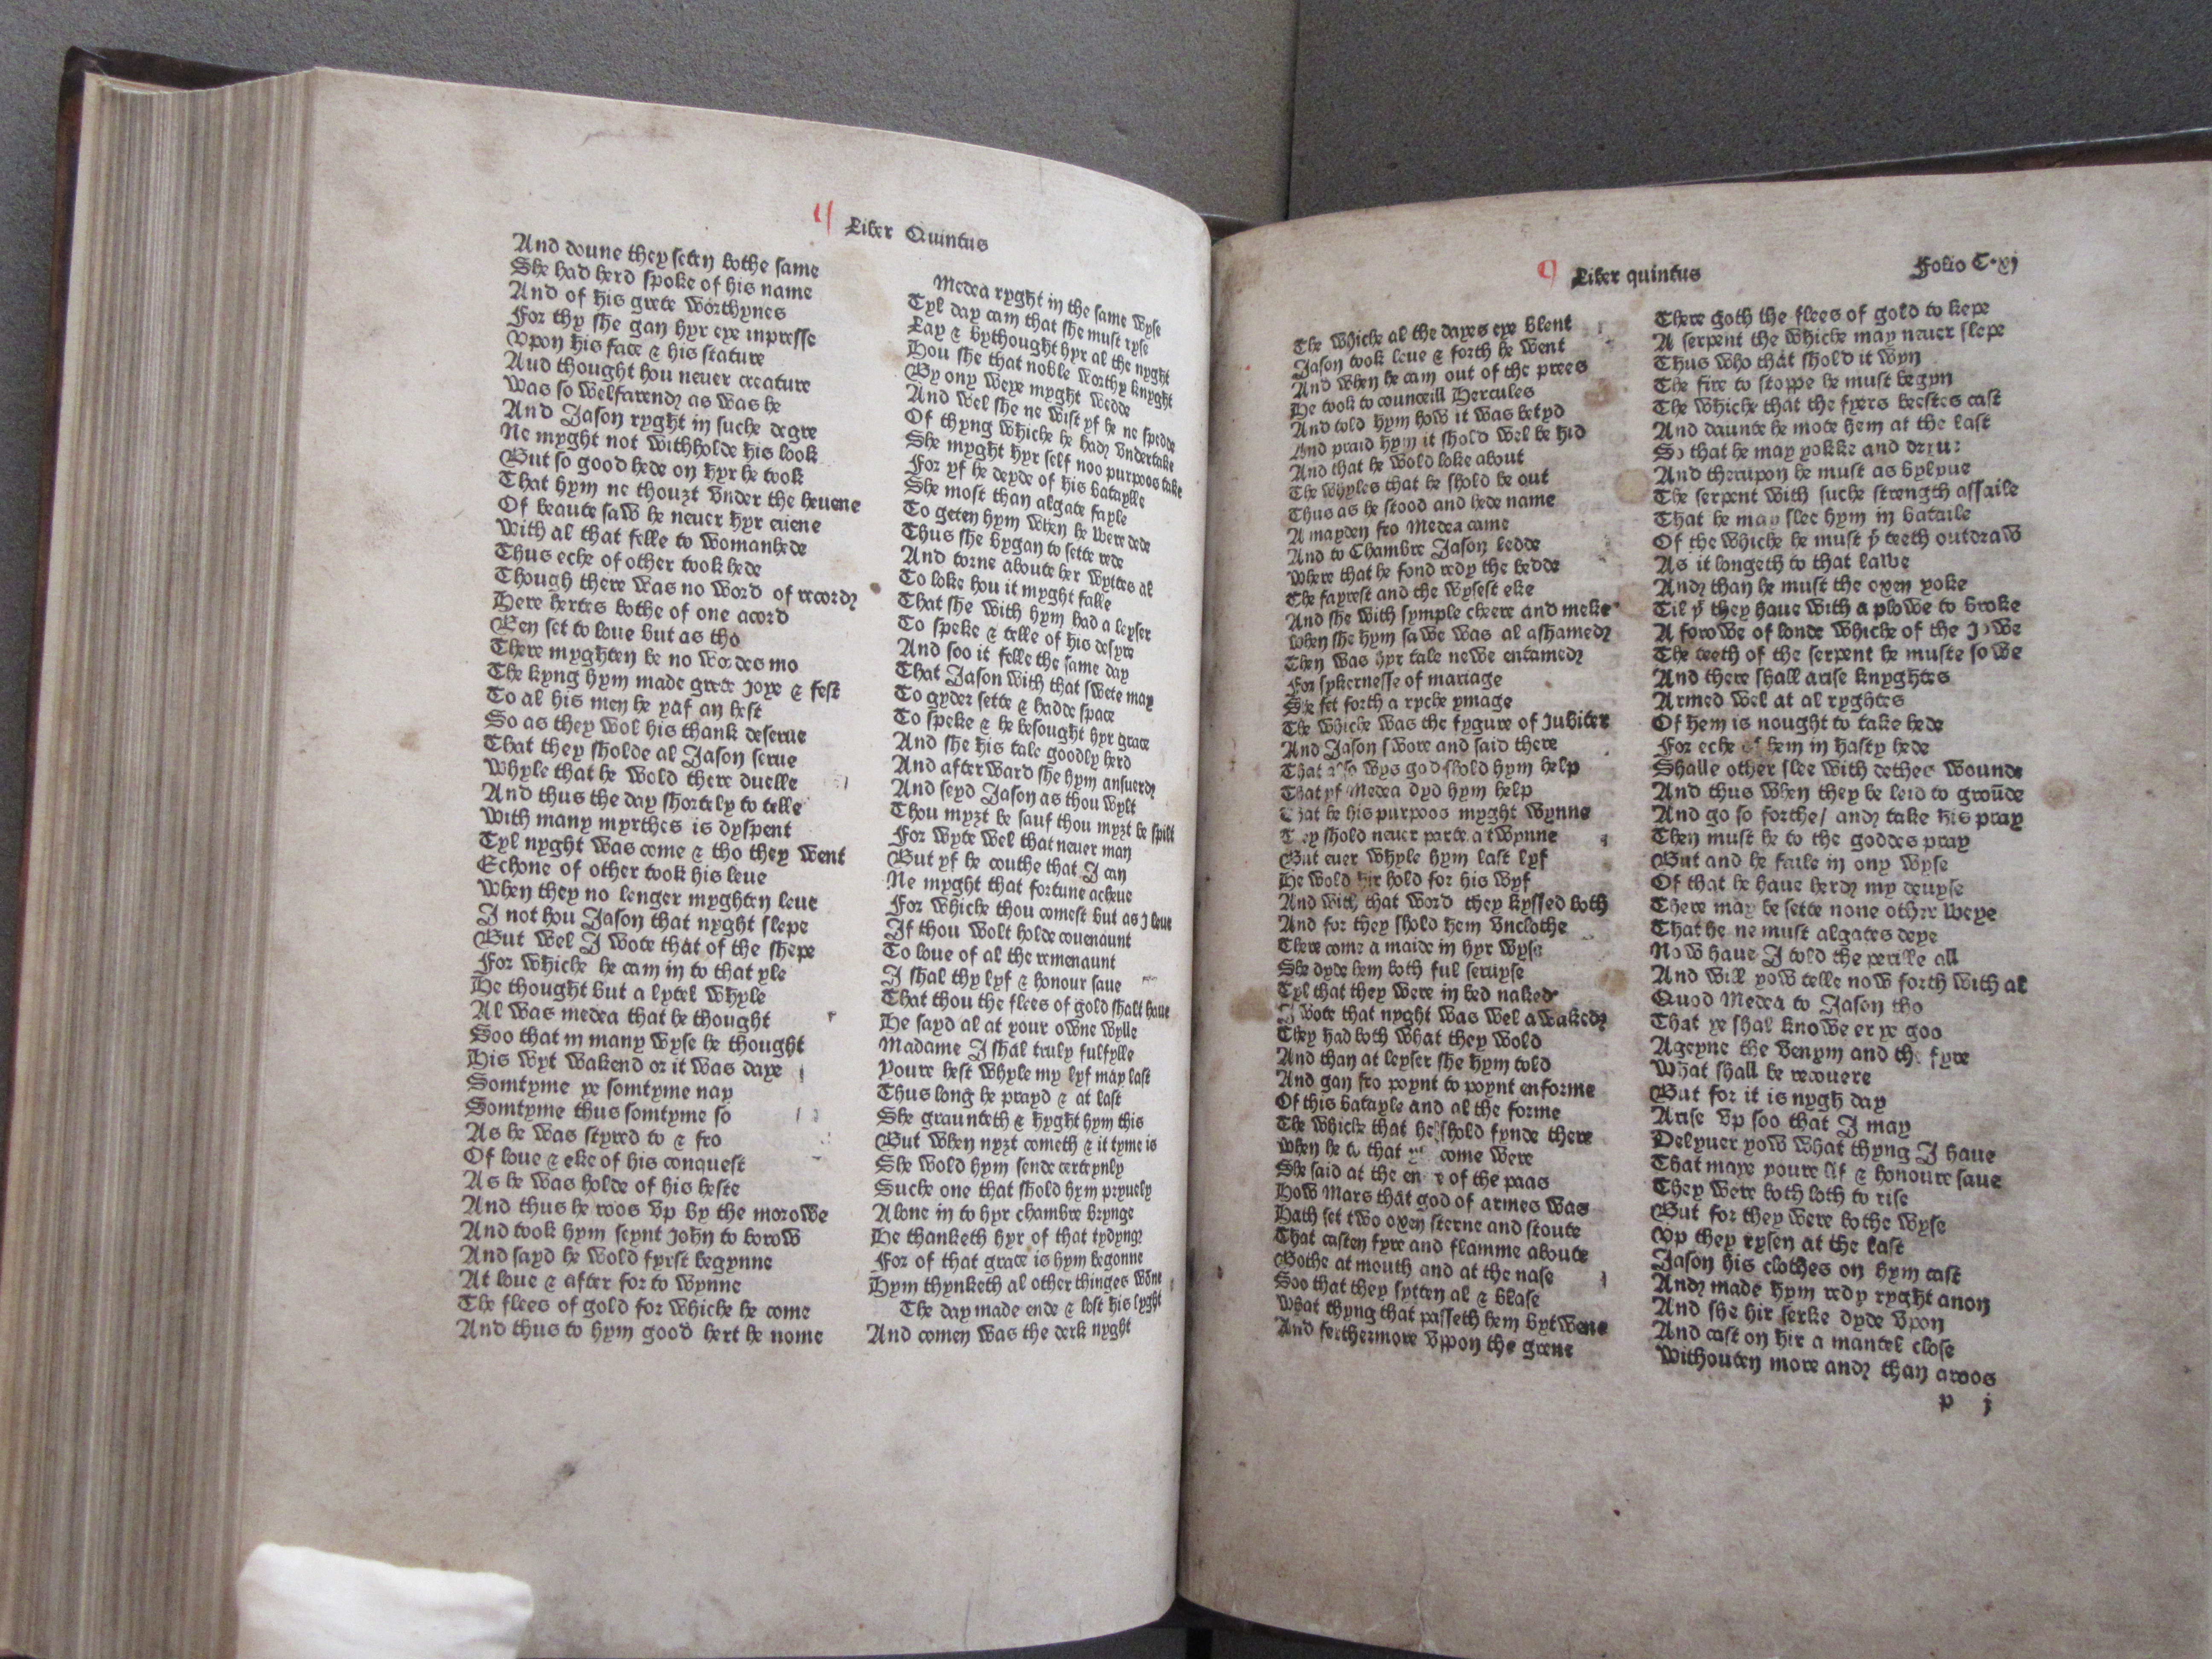 Liber Quintus
And doune they seten bothe same
She had herd spoke of his name
And of his grete worthynes
For thy she gan hyr eye inpresse
Vpon his face & his stature
Aud thought hou neuer creature
Was so welfarend as was he
And Jason ryght in suche degre
Ne myght not withholde his look
But so good hede on hyr he took
That hym ne thouzt vnder the heuene
Of beaute saw he neuer hyr euene
With al that felle to womanhede
Thus eche of other took hede
Though there was no word of record
Here hertes bothe of one acord
Ben set to loue but as tho
There myghten be no wordes mo
The kyng hym made grete joye & fest
To al his men he yaf an hest
So as they wol his thank deserue
That they sholde al Jason serue
Whyle that he wold there duelle
And thus the day shortely to telle
With many myrthes is dyspent
Tyl nyght was come & tho they went
Echone of other took his leue
When they no lenger myghten leue
I not hou Jason that nyght slepe
But wel I wote that of the shepe
For whiche he cam in to that yle
He thought but a lytel whyle
Al was medea that he thought
Soo that in many wyse he thought
His wyt wakend or it was daye
Somtyme ye somtyme nay
Somtyme thus somtyme so
As he was styred to & fro
Of loue & eke of his conquest
As he was holde of his heste
And thus he roos vp by the morowe
And took hym seynt john to borow
And sayd he wold fyrst begynne
At loue & after for to wynne
The flees of gold for whiche he come
And thus to hym good hert he nome
Medea ryght in the same wyse
Tyl day cam that she must ryse
Lay & bythought hyr al the nyght
Hou she that noble worthy knyght
By ony weye myght wedde
And wel she ne wist yf he ne spedde
Of thyng whiche he had vndertake
She myght hyr self noo purpoos take
For yf he deyde of his bataylle
She most than algate fayle
To geten hym when he were dede
Thus she bygan to sette rede
And torne aboute her wyttes al
To loke hou it myght falle
That she with hym had a leyser
To speke & telle of his desyre
And soo it felle the same day
That Jason with that swete may
To gyder sette & hadde space
To speke & he besought hyr grace
And she his tale goodly herd
And afterward she hym ansuerd
And seyd Jason as thou wylt
Thou myzt be sauf thou myzt be spilt
For wyte wel that neuer man
But yf he couthe that I can
Ne myght that fortune acheue
For whiche thou comest but as j leue
If thou wolt holde couenaunt
To loue of al the remenaunt
I shal thy lyf & honour saue
That thou the flees of gold shalt haue
He sayd al at your owne wylle
Madame I shal truly fulfylle
Youre hest whyle my lyf may last
Thus long he prayd & at last
She graunteth & hyght hym this
But when nyzt cometh & it tyme is
She wold hym sende certeynly
Suche one that shold hym pryuely
Alone in to hyr chambre brynge
He thanketh hyr of that tydyng
For of that grace is hym begonne
Hym thynketh al other thinges wōne
The day made ende & lost his lyght
And comen was the derk nyght
Liber quintus
Folio C.xj
The whiche al the dayes eye blent
Jason took leue & forth he went
And when he cam out of the prees
He took to counceill Hercules
And told hym how it was betyd
And praid hym it shold wel be hid
And that he wold loke about
The whyles that he shold be out
Thus as he stood and hede name
A mayden fro Medea came
And to Chambre Jason ledde
Where that he fond redy the bedde
The fayrest and the wysest eke
And she with symple cheere and meke
When she hym sawe was al ashamed
Then was hyr tale newe entamed
For sykernesse of mariage
She fet forth a ryche ymage
The whiche was the fygure of Jubiter
And Jason swore and said there
That also wys god shold hym help
That yf Medea dyd hym help
That he his purpoos myght wynne
They shold neuer parte atwynne
But euer whyle hym last lyf
He wold hir hold for his wyf
And with that word they kyssed both
And for they shold hem vnclothe
There come a maide in hyr wyse
She dyde hem both ful seruyse
Tyl that they were in bed naked
I wote that nyght was wel awaked
They had both what they wold
And than at leyser she hym told
And gan fro poynt to poynt enforme
Of this batayle and al the forme
The whiche that he shold fynde there
When he to that come were
She said at the entre of the paas
How Mars that god of armes was
Hath set two oxen sterne and stoute
That casten fyre and flamme aboute
Bothe at mouth and at the nase
Soo that they sytten al & blase
What thyng that passeth hem bytwene
And ferthermore vpon the grene
There goth the flees of gold to kepe
A serpent the whiche may neuer slepe
Thus who that shold it wyn
The fire to stoppe he must begyn
The whiche that the fyers beestes cast
And daunte he mote hem at the last
So that he may yokke and dryue
And therupon he must as bylyue
The serpent with suche strength assaile
That he may slee hym in bataile
Of the whiche he must þͭ teeth outdraw
As it longeth to that lawe
And than he must the oxen yoke
Til þͭ they haue with a plowe to broke
A forowe of londe whiche of the rowe
The teeth of the serpent he muste sowe
And there shall arise knyghtes
Armed wel at al ryghtes
Of hem is nought to take hede
For eche of hem in hasty hede
Shalle other slee with dethes wounde
And thus when they be leid to groūde
And go so forthe/ and take his pray
Then must he to the goddes pray
But and he faile in ony wyse
Of that he haue herd my deuyse
There may be sette none other weye
That he ne must algates deye
Now haue I told the perille all
And will yow telle now forth with al
Quod Medea to Jason tho
That ye shal knowe er ye goo
Ageyne the venym and the fyre
What shall be recouere
But for it is nygh day
Arise vp soo that I may
Delyuer yow what thyng I haue
That maye youre lif & honoure saue
They were both loth to rise
But for they were bothe wyse
Vp they rysen at the last
Jason his clothes on hym cast
And made hym redy ryght anon
And she hir serke dyde vpon
And cast on hir a mantel close
Withouten more and than aroos
p j